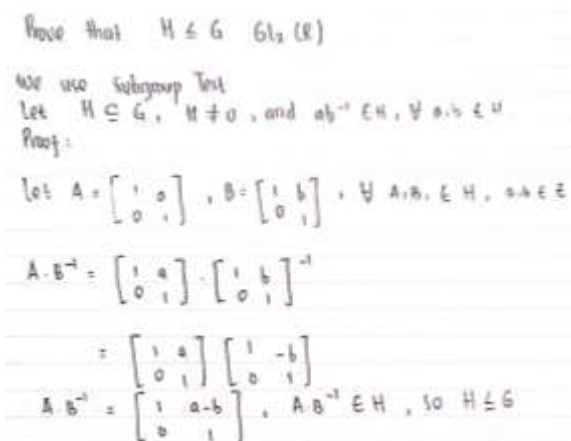 Prove that H ≤ G Gl₂ (R)
We use Subgroup Test
Let H ⊆ G, H ≠ 0, and ab⁻¹ ∈ H, ∀ a.b ∈ H
Proof:
let A = [1 a; 0 1], B = [1 b; 0 1], ∀ A,B, ∈ H, a.b ∈ Z
A.B⁻¹ = [1 a; 0 1] . [1 b; 0 1]⁻¹
= [1 a; 0 1] [1 -b; 0 1]
A.B⁻¹ = [1 a-b; 0 1], A.B⁻¹ ∈ H, so H ≤ G